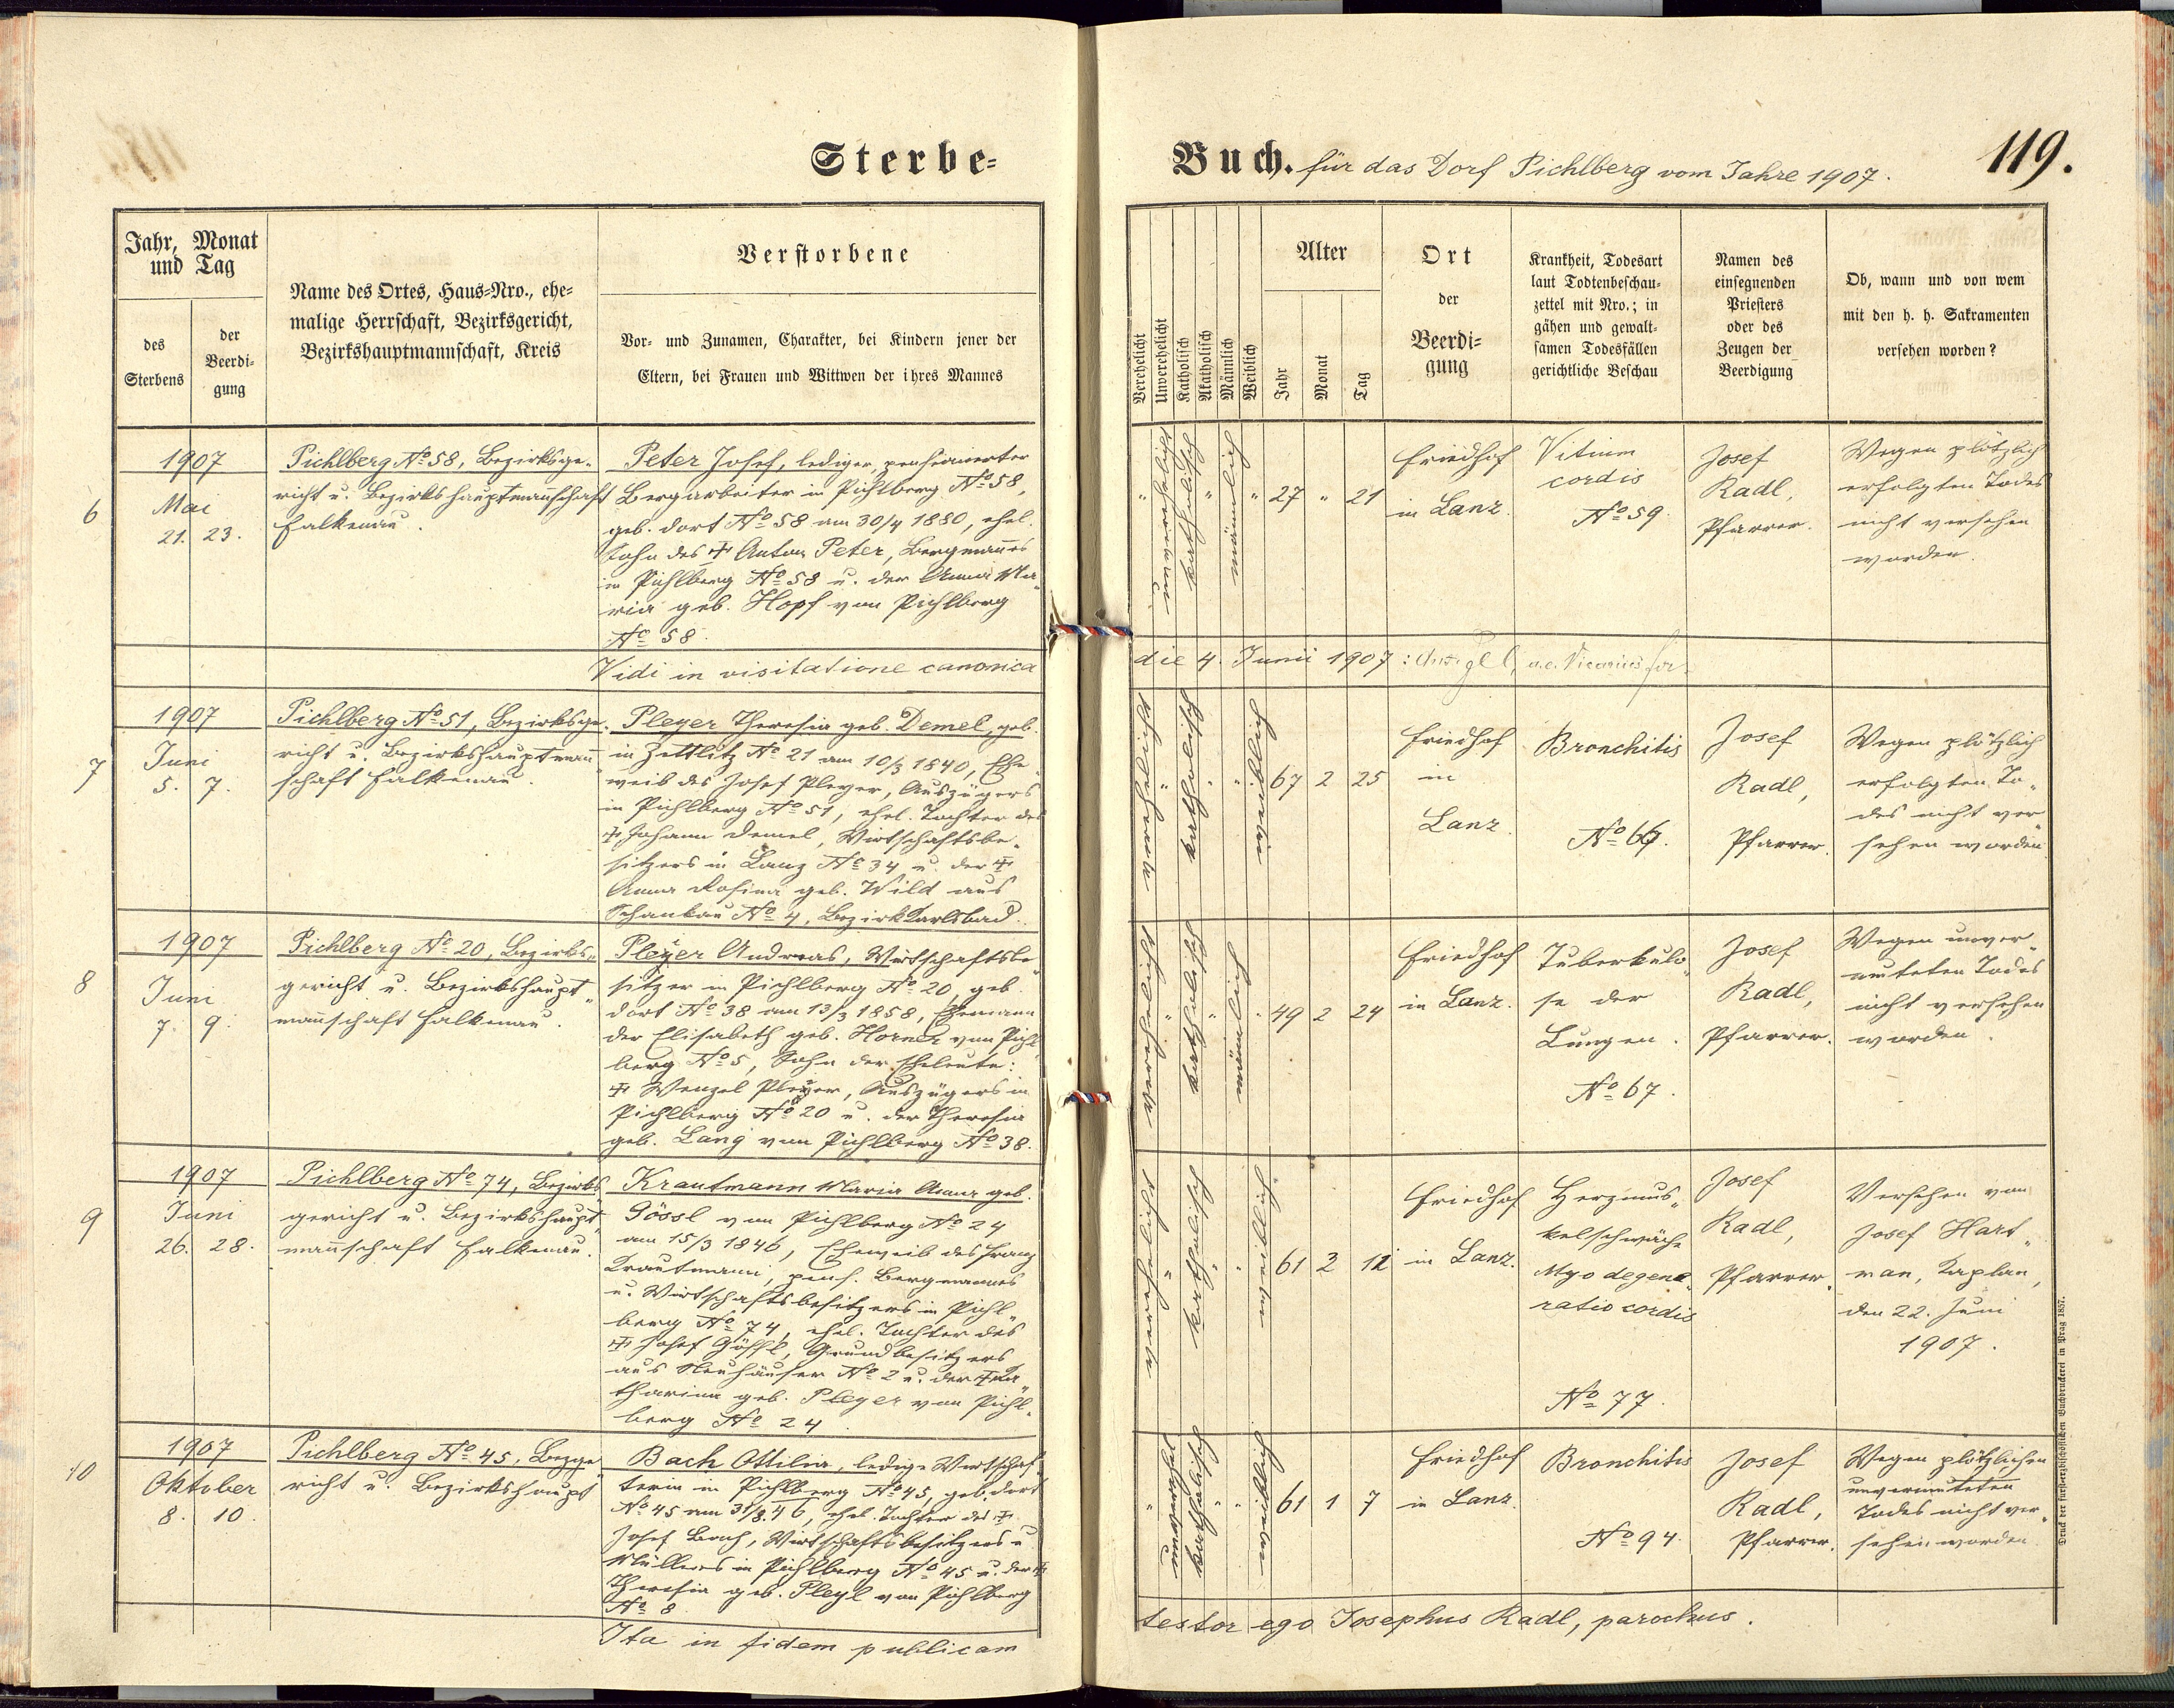 Sterbe-
Jahr, Monat
und Tag
des
Sterbens
der
Beerdi-
gung
Name des Ortes, Haus-Nro., ehe-
malige Herrschaft, Bezirksgericht,
Bezirkshauptmannschaft, Kreis
Verstorbene
Vor- und Zunamen, Charakter, bei Kindern jener der
Eltern, bei Frauen und Wittwen der ihres Mannes
6
1907
Mai
21. 23.
Pichlberg No 58, Bezirksge-
richt u. Bezirkshauptmannschaft
Falkenau.
Peter Josef, lediger, pensionierter
Bergarbeiter in Pichlberg No 58,
geb. dort No 58 am 30/4 1880, ehel.
Sohn des ☩ Anton Peter, Bergmannes
in Pichlberg No 58 u. der Anna Ma-
ria geb. Hopf von Pichlberg
No 58.
Vidi in visitatione canonica
7
1907
Juni
5. 7.
Pichlberg No 51, Bezirksge-
richt u. Bezirkshauptmann
schaft Falkenau.
Pleyer Theresia geb. Demel, geb.
in Zettlitz No 21 am 10/3 1840, Ehe-
weib des Josef Pleyer, Auszügers
in Pichlberg No 51, ehel. Tochter des
☩ Johann Demel, Wirtschaftsbe-
sitzers in Lanz No 34 u. der ☩
Anna Rosina geb. Wild aus
Schankau No 4, Bezirk Karlsbad.
8
1907
Juni
7. 9.
Pichlberg No 20, Bezirks-
gericht u. Bezirkshaupt-
mannschaft Falkenau.
Pleyer Andreas, Wirtschaftsbe-
sitzer in Pichlberg No 20, geb.
dort No 38 am 13/3 1858, Ehemann
der Elisabeth geb. Horner von Pichl-
berg No 5, Sohn der Eheleute:
☩ Wenzel Pleyer, Auszügers in
Pichlberg No 20 u. der Theresia
geb. Lang von Pichlberg No 38.
9
1907
Juni
26. 28.
Pichlberg No 74, Bezirks
gericht u. Bezirkshaupt-
mannschaft Falkenau.
Krautmann Maria Anna geb.
Gössl von Pichlberg No 24
am 15/3 1846, Eheweib des Franz
Krautmann, pens. Bergmannes
u. Wirtschaftsbesitzers in Pichl-
berg No 74, ehel. Tochter des
☩ Josef Gössl, Grundbesitzers
aus Neuhäuser No 2 u. der ☩ Ka-
tharina geb. Pleyer von Pichl-
berg No 24
10
1907
Oktober
8. 10.
Pichlberg No 45, Bezge-
richt u. Bezirkshaupt
Bach Ottilia, ledige Wirtschaf-
terin in Pichlberg No 45, geb. dort
No 45 am 31/8 46, ehel. Tochter des ☩
Josef Bach, Wirtschaftsbesitzers u.
Müllers in Pichlberg No 45 u. der ☩
Theresia geb. Pleyl von Pichlberg
No 8
Ita in fidem publicam
Buch. für das Dorf Pichlberg vom Jahre 1907.
119.
Verehelicht
Unverehelicht
Katholisch
Akatholisch
Männlich
Weiblich
Alter
Jahr
Monat
Tag
Ort
der
Beerdi-
gung
Krankheit, Todesart
laut Todtenbeschau-
zettel mit Nro.; in
gähen und gewalt-
samen Todesfällen
gerichtliche Beschau
Namen des
einsegnenden
Priesters
oder des
Zeugen der
Beerdigung
Ob, wann und von wem
mit den h. h. Sakramenten
versehen worden?
" unverehelicht katholisch " männlich " 27 " 21
Friedhof
in Lanz.
Vitium
cordis
No 59.
Josef
Radl,
Pfarrer.
Wegen plötzlich
erfolgten Todes
nicht versehen
worden.
die 4. Junii 1907:
verehelicht " katholisch " " weiblich 67 2 25
Friedhof
in
Lanz.
Bronchitis
No 66.
Josef
Radl,
Pfarrer.
Wegen plötzlich
erfolgten To-
des nicht ver
sehen worden
verehelicht " katholisch " männlich " 49 2 24
Friedhof
in Lanz.
Tuberkulo-
se der
Lungen.
No 67.
Josef
Radl,
Pfarrer.
Wegen unver-
muteten Todes
nicht versehen
worden.
verehelicht " katholisch " " weiblich 61 3 12
Friedhof
in Lanz.
Herzmus-
kelschwäche
Myo degene-
ratio cordis
No 77.
Josef
Radl,
Pfarrer.
Versehen von
Josef Hart-
man, Kaplan,
den 22. Juni
1907.
" unverehel katholisch " " weiblich 61 1 7
Friedhof
in Lanz.
Bronchitis
No 94.
Josef
Radl,
Pfarrer.
Wegen plötzlichen
unvermuteten
Todes nicht ver-
sehen worden.
testor ego Josephus Radl, parochus.
Druck der fürsterzbischöflichen Buchdruckerei in Prag 1857.